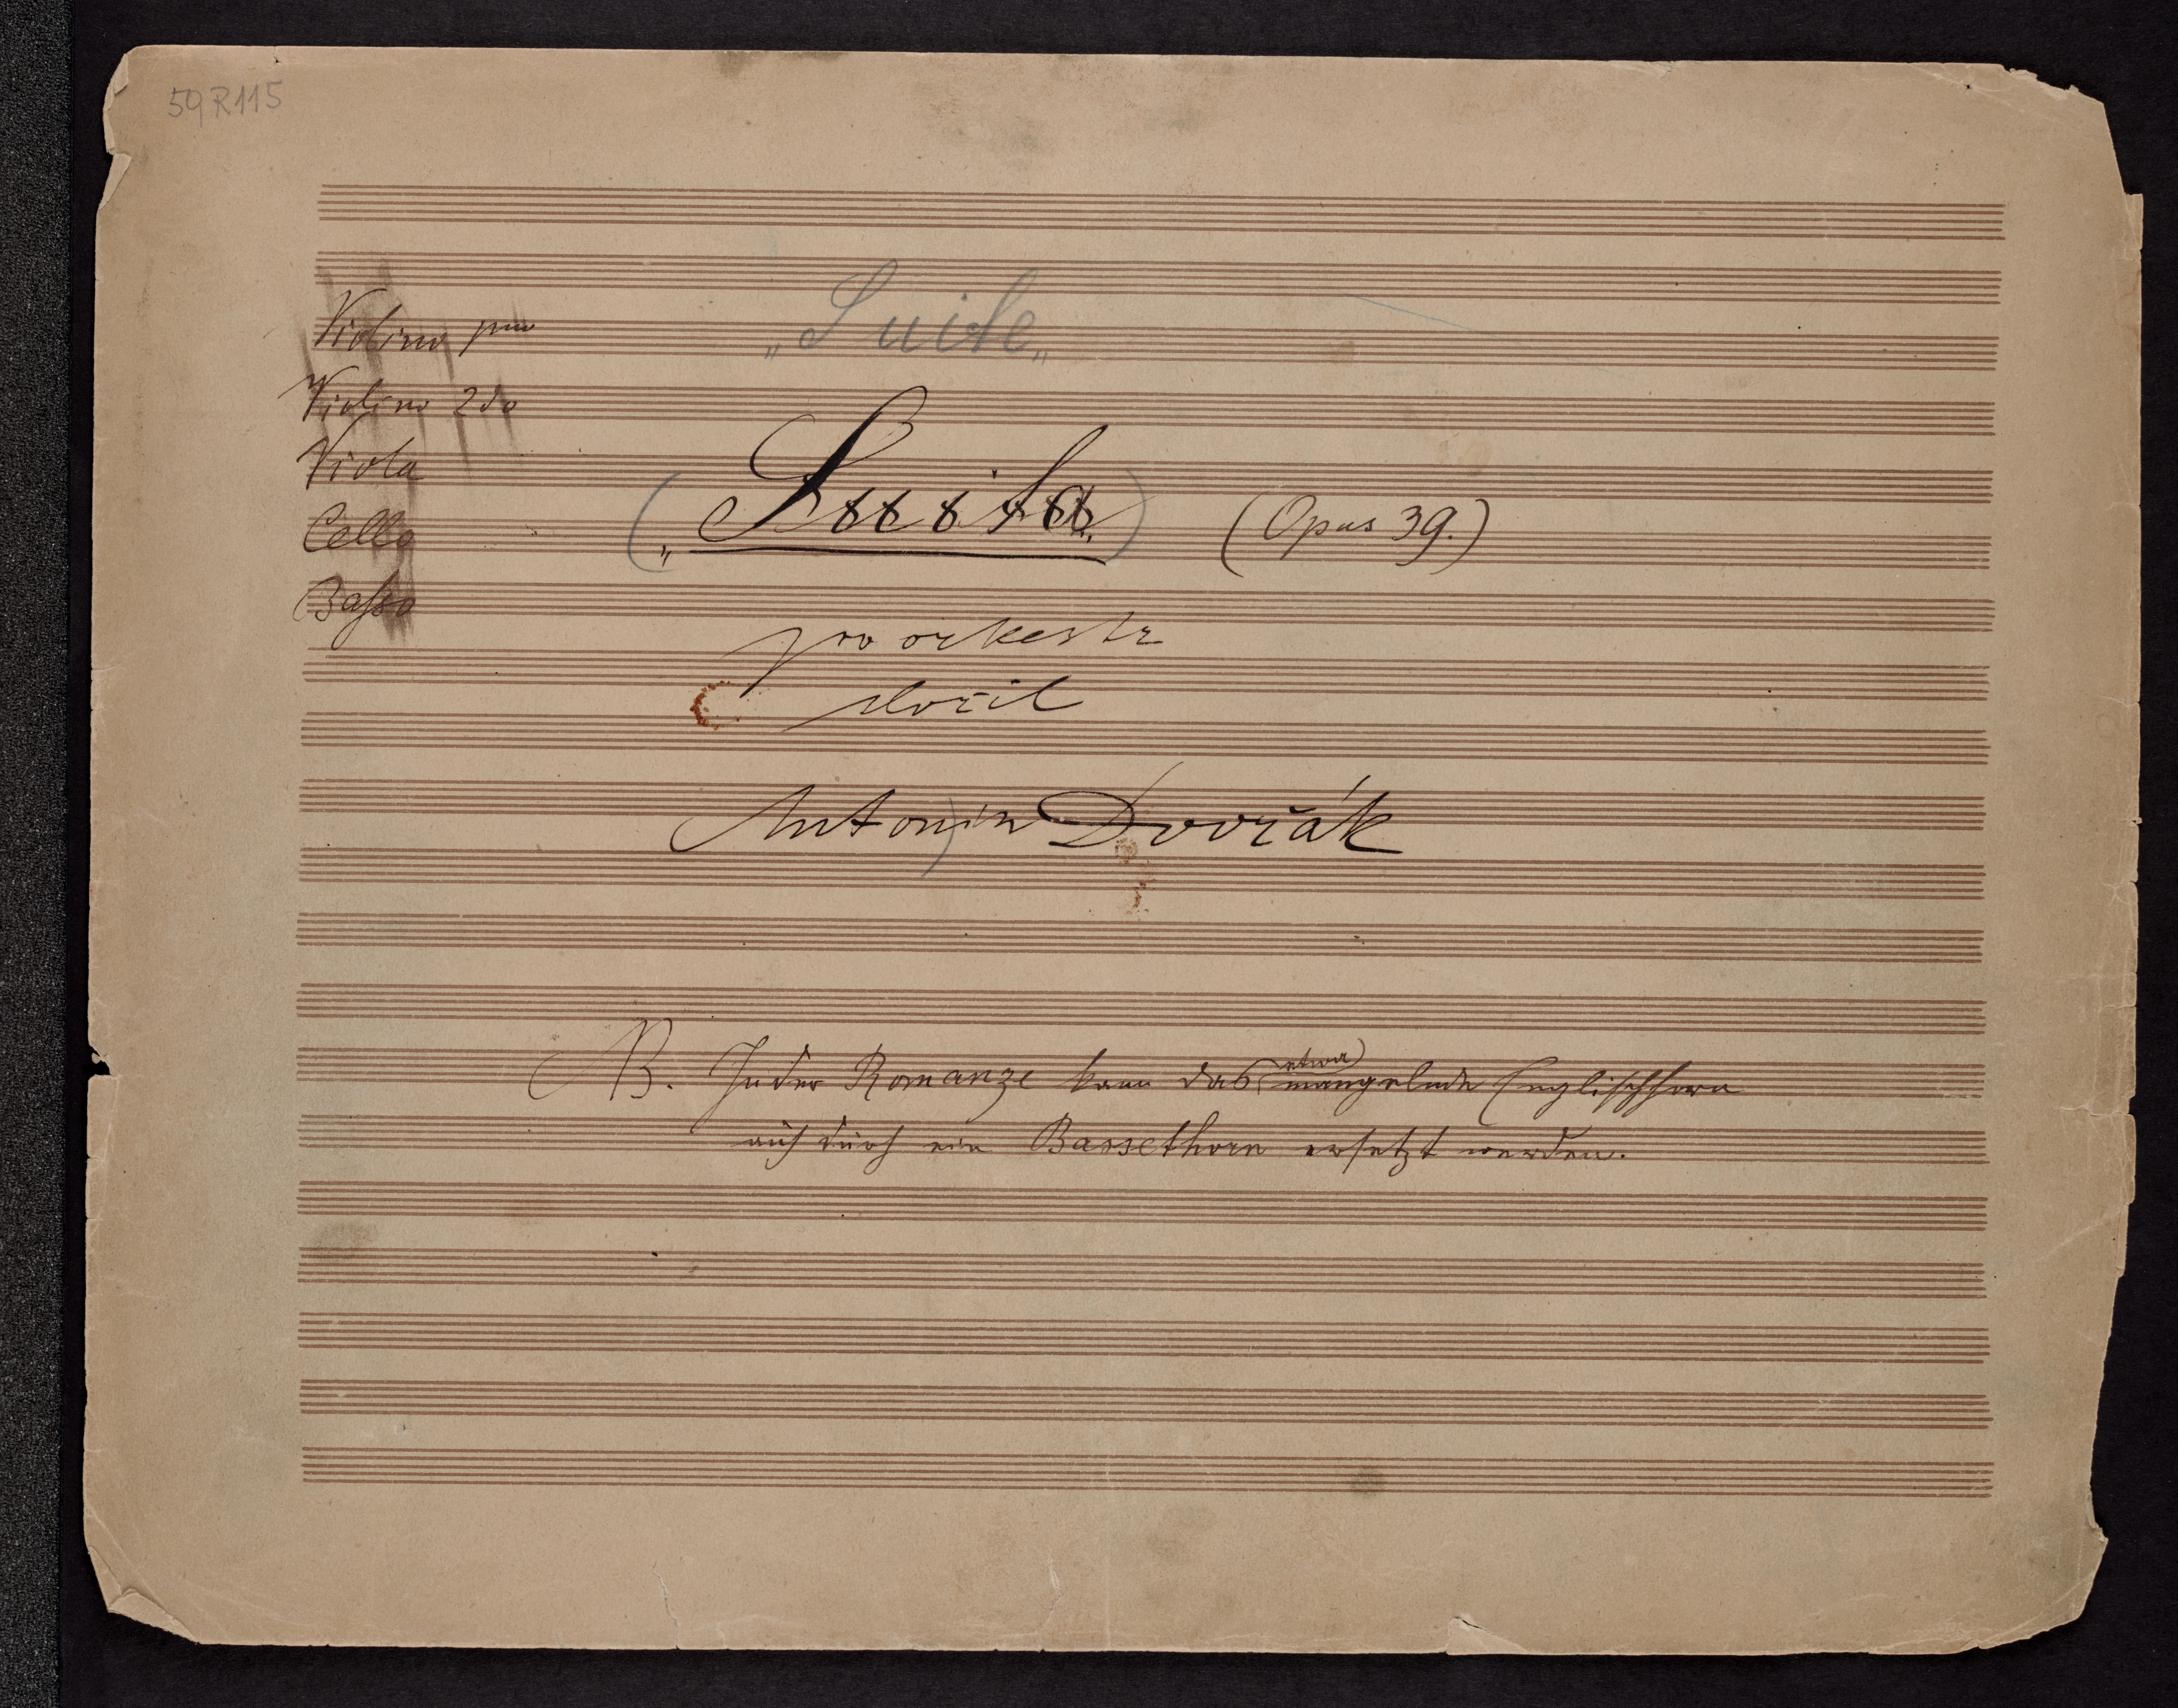 59 R 115
„Suite„
Violino pmo
Violino 2do
Viola
Cello
Basso
(„Suita„) (Opus 39.)
pro orkestr
složil
Antonín Dvořák
NB. In der Romanze kann das (etwa) mangelnde Englischhorn
auch durch ein Bassethorn ersetzt werden.